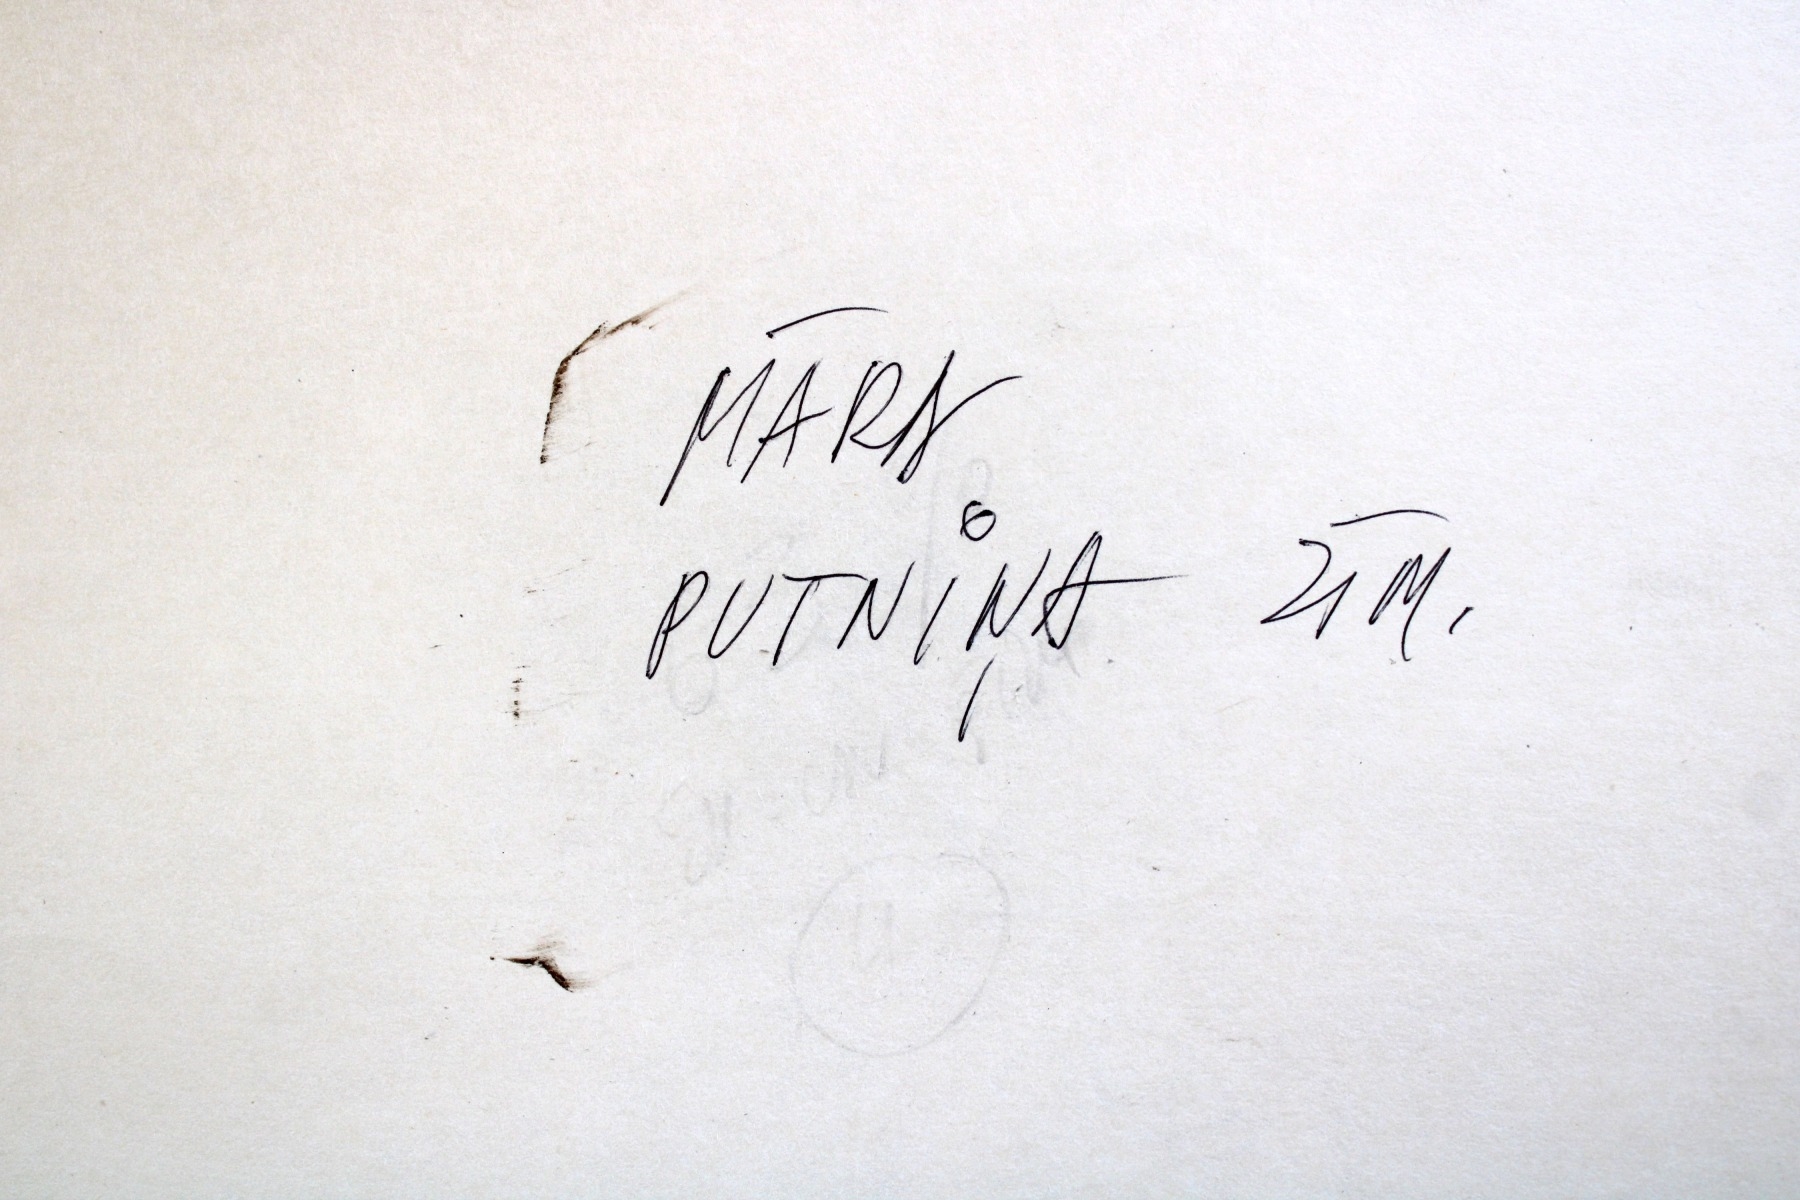 MĀRA
PUTNIŅA ZĪM.